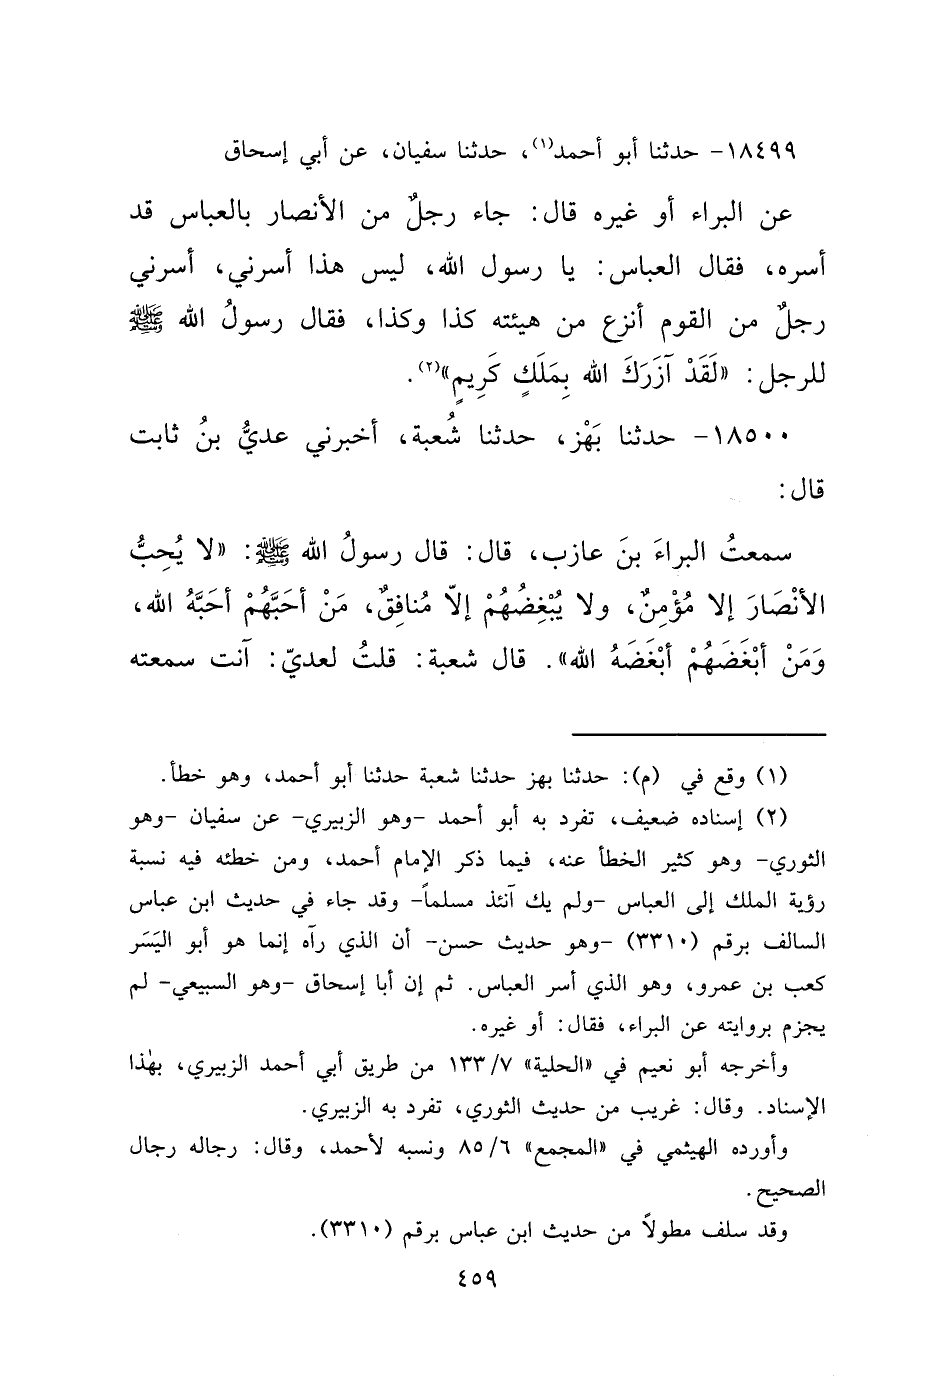 ١٨٤٩٩- حدثنا أبو أحمد(١)، حدثنا سفيان، عن أبي إسحاق
عن البراء أو غيره قال: جاء رجلٌ من الأنصار بالعباس قد
أسره، فقال العباس: يا رسول الله، ليس هذا أسرني، أسرني
رجلٌ من القوم أنزع من هيئته كذا وكذا، فقال رسولُ الله ﷺ
للرجل: «لَقَدْ آزَرَكَ الله بِمَلَكٍ كَرِيمٍ»(٢).
١٨٥٠٠- حدثنا بَهْز، حدثنا شُعبة، أخبرني عديُّ بنُ ثابت
قال:
سمعتُ البراءَ بنَ عازب، قال: قال رسولُ الله ﷺ: «لا يُحِبُّ
الأنْصَارَ إلا مُؤْمِنٌ، ولا يُبْغِضُهُمْ إلاّ مُنافِقٌ، مَنْ أحَبَّهُمْ أحَبَّهُ الله،
وَمَنْ أبْغَضَهُمْ أبْغَضَهُ الله». قال شعبة: قلتُ لعديّ: آنت سمعته
(١) وقع في (م): حدثنا بهز حدثنا شعبة حدثنا أبو أحمد، وهو خطأ.
(٢) إسناده ضعيف، تفرد به أبو أحمد -وهو الزبيري- عن سفيان -وهو
الثوري- وهو كثير الخطأ عنه، فيما ذكر الإمام أحمد، ومن خطئه فيه نسبة
رؤية الملك إلى العباس -ولم يك آنئذ مسلماً- وقد جاء في حديث ابن عباس
السالف برقم (٣٣١٠) -وهو حديث حسن- أن الذي رآه إنما هو أبو اليَسَر
كعب بن عمرو، وهو الذي أسر العباس. ثم إن أبا إسحاق -وهو السبيعي- لم
يجزم بروايته عن البراء، فقال: أو غيره.
وأخرجه أبو نعيم في «الحلية» ١٣٣/٧ من طريق أبي أحمد الزبيري، بهٰذا
الإسناد. وقال: غريب من حديث الثوري، تفرد به الزبيري.
وأورده الهيثمي في «المجمع» ٨٥/٦ ونسبه لأحمد، وقال: رجاله رجال
الصحيح.
وقد سلف مطولاً من حديث ابن عباس برقم (٣٣١٠).
٤٥٩